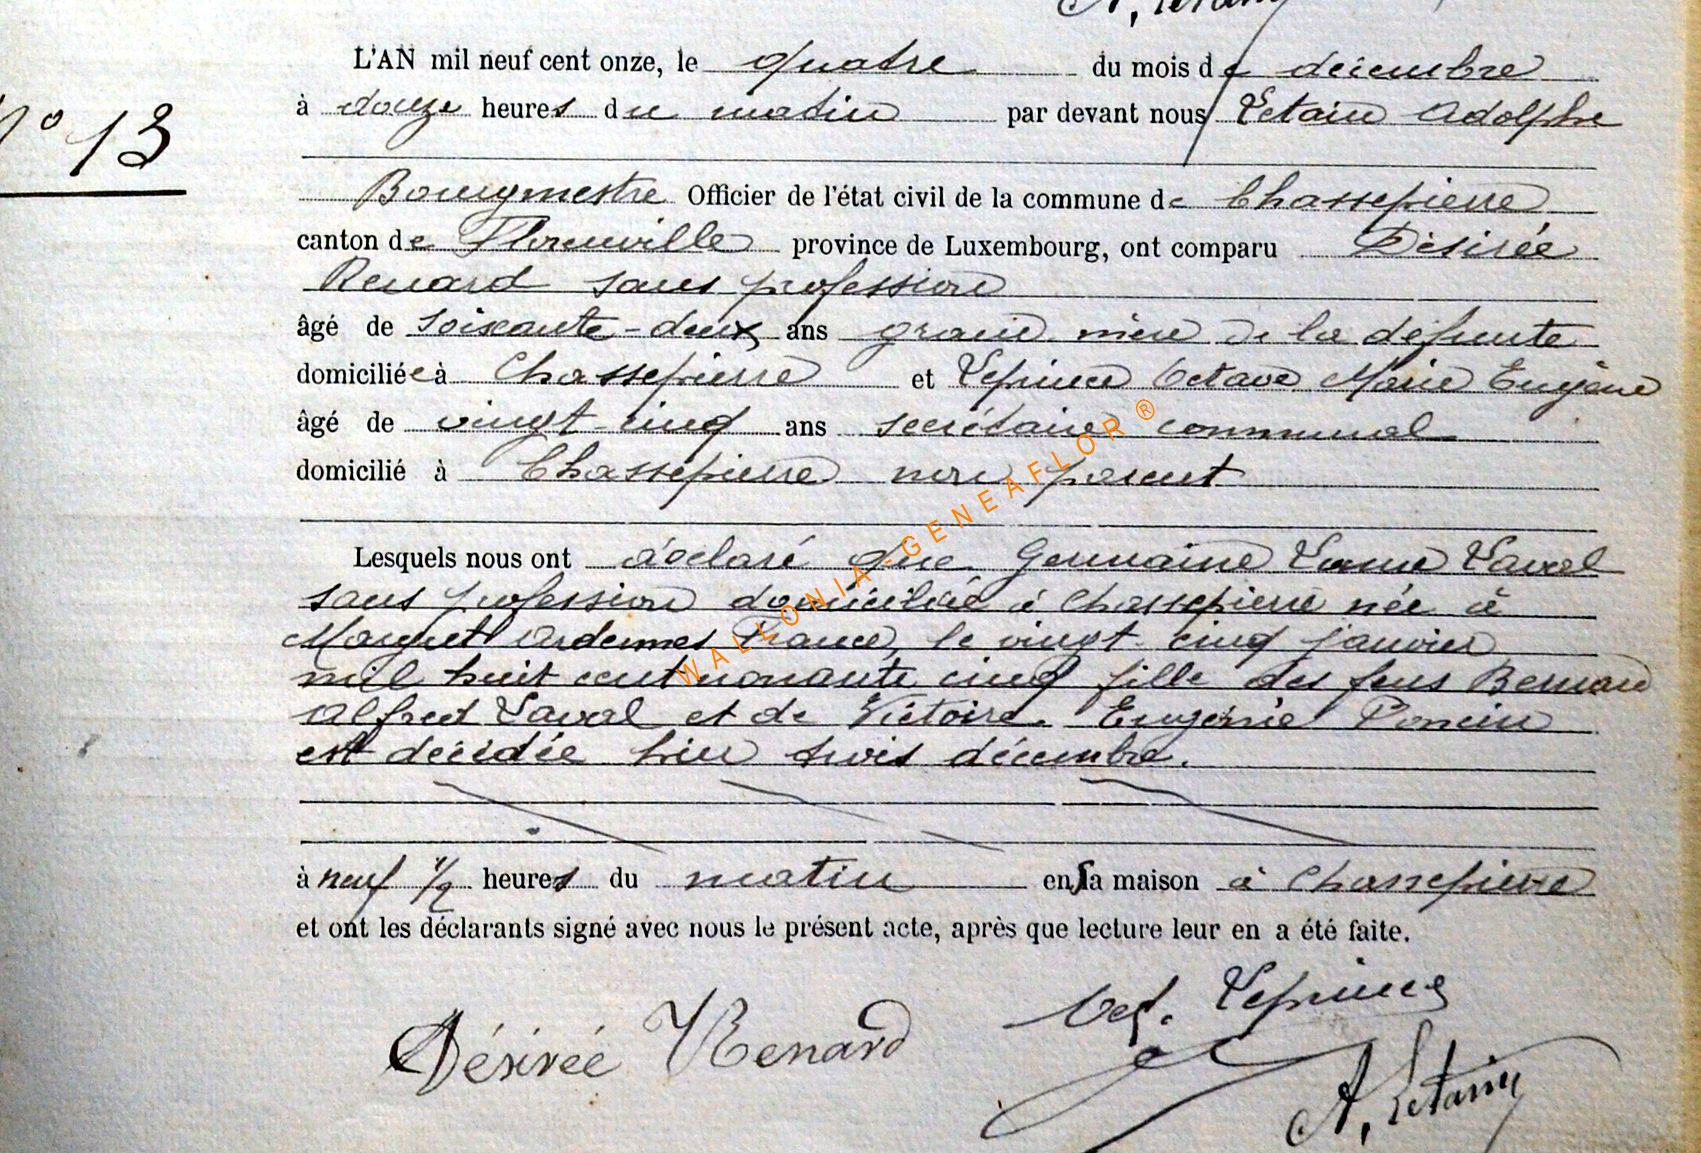 A. Letain
L'AN mil neuf cent onze, le quatre du mois de décembre
à douze heures du matin par devant nous Letain Adolphe
N° 13
Bourgmestre Officier de l'état civil de la commune de Chassepierre
canton de Florenville province de Luxembourg, ont comparu Désirée
Renard sans profession
âgé de soixante-deux ans grand mère de la défunte
domiciliée à Chassepierre et Lepince Octave Marie Eugène
âgé de vingt-cinq ans secrétaire communal
domicilié à Chassepierre non parent
Lesquels nous ont déclaré que Germaine Laval
sans profession domiciliée à Chassepierre née à
Ardennes France, le vingt-cinq janvier
mil huit cent nonante cinq fille des feus Bernard
Alfred Laval et de Victoire Eugénie Poncin
est décédée hier trois décembre.
à neuf 1/2 heures du matin en sa maison à Chassepierre
et ont les déclarants signé avec nous le présent acte, après que lecture leur en a été faite.
Désirée Renard
Oct. Lepince
A. Letain
WALLONIA-GENEAFLOR ®